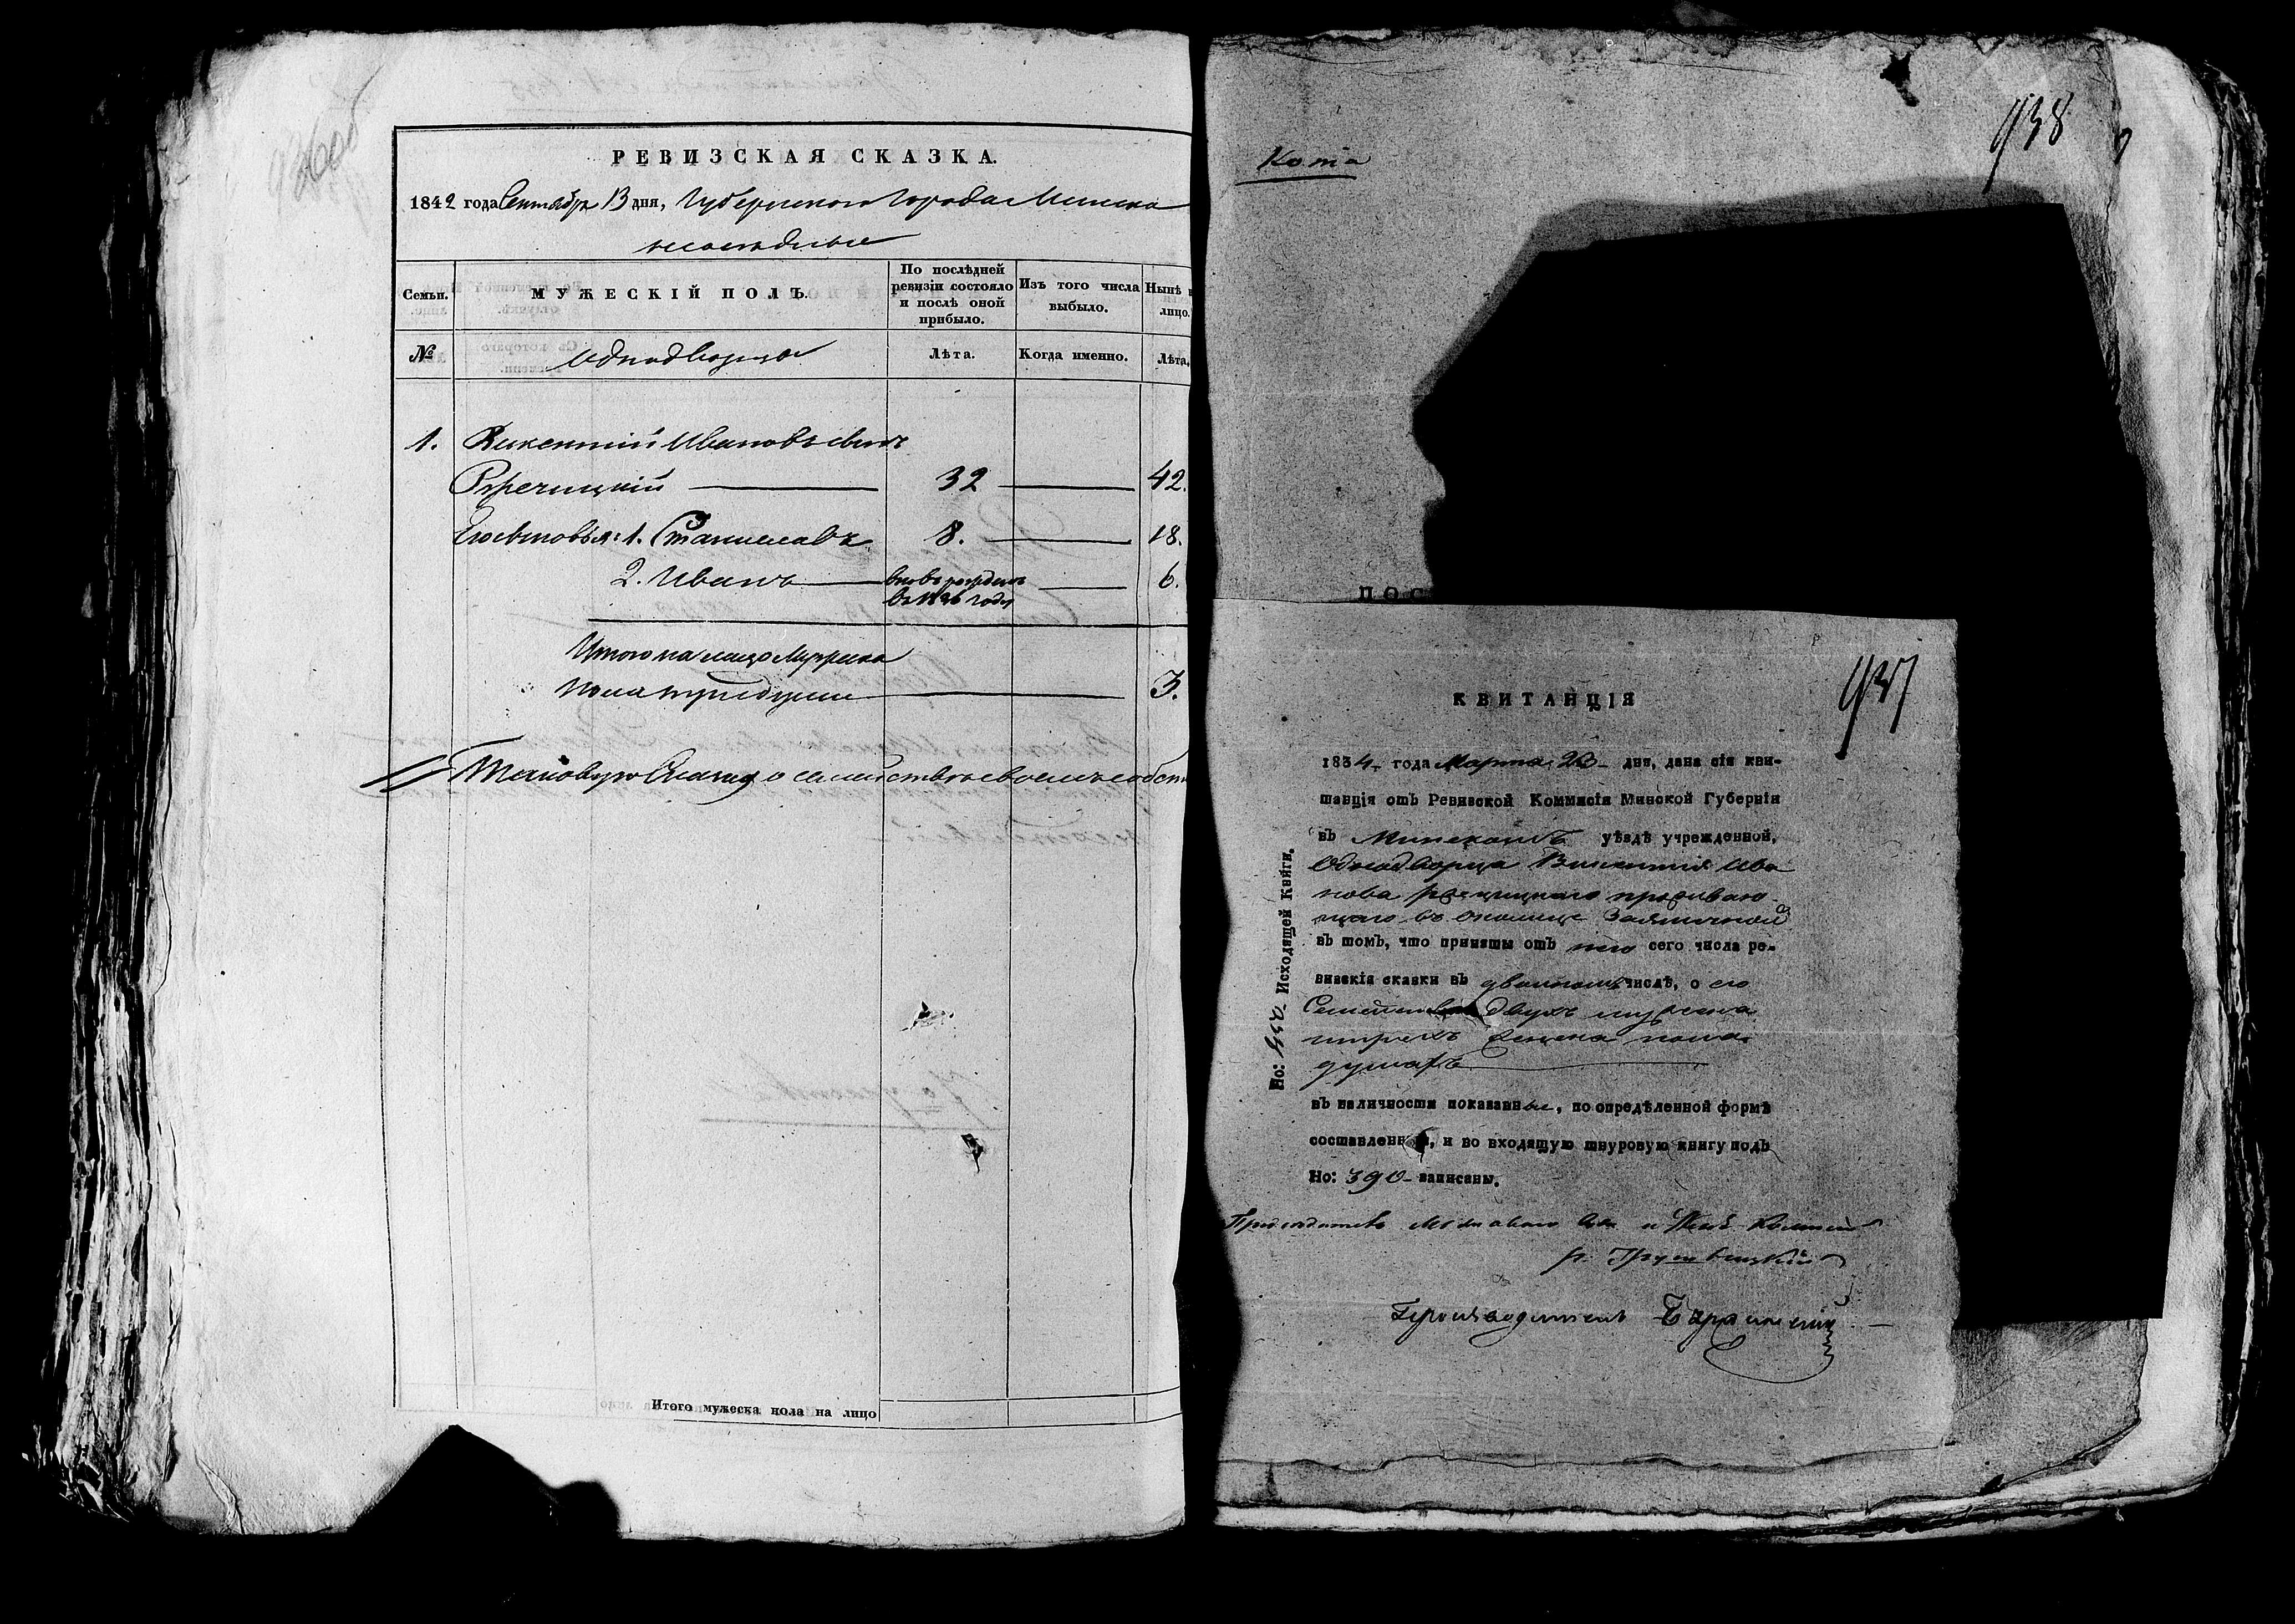 936об
РЕВИЗСКАЯ СКАЗКА.
1842 года Сентября 13 дня, Губернскаго Города Минска
Семьи.
МУЖЕСКІЙ ПОЛЪ.
По послѣдней ревизіи состояло и послѣ оной прибыло.
Изъ того числа выбыло.
Нынѣ
лицо.
№
однодворцы
Лѣта.
Когда именно.
Лѣта.
1. Викентій Ивановъ сынъ
Рѣчицкій 32 42.
Сыновья: 1. Станиславъ 8. 18.
2. Иванъ вновь рожденъ 6.
въ 1836 году
Итого на лицо Мужеска
Пола 3.
Таковую Сказку о семействѣ своемъ
Итого мужеска пола на лицо
938
Копія
ПОС
937
КВИТАНЦІЯ
1834 года Марта 23 дня, дана сія кви-
танція отъ Ревизской Коммисіи Минской Губерніи
въ Минскомъ уѣздѣ учрежденной,
Однодворца Викентія Ива
нова Рѣчицкаго проживаю-
щаго въ околицѣ
въ томъ, что приняты отъ него сего числа ре-
визскія сказки въ двойномъ числѣ, о его
Семействѣ двухъ мужеска
трехъ женска пола
душахъ
въ наличности показанные, по опредѣленной формѣ
составленны, и во входящую шнуровую книгу подъ
Но: 390 записаны.
Но: Исходящей Книги.
Предсѣдатель
Производитель